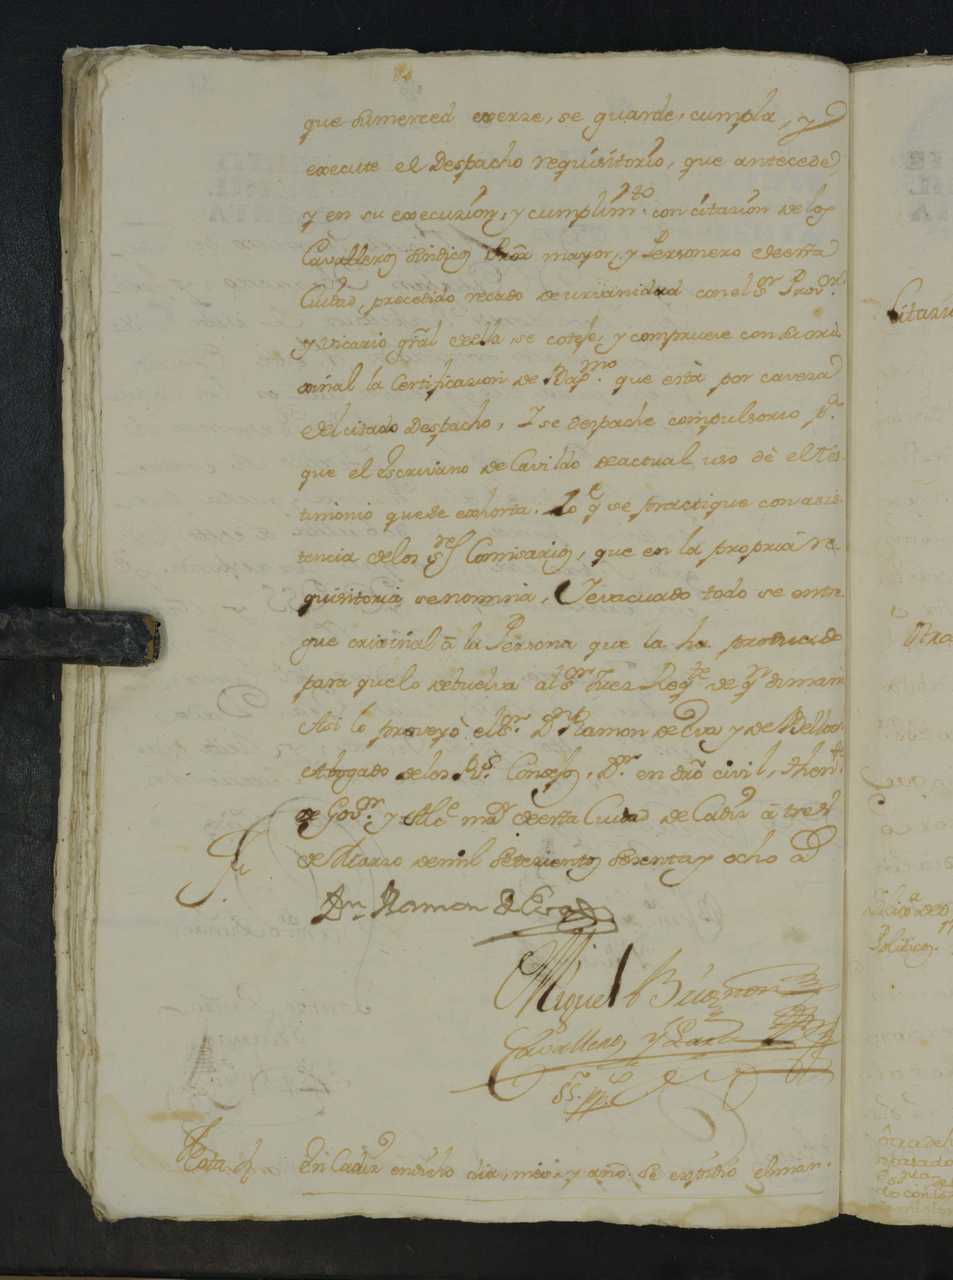 que Sumerced exerze, se guarde, cumpla, y
execute el Despacho requisitorio, que antecede
y en su execuzion, y cumplim.to con citazion de los
Cavalleros Sindicos Prõr mayor, y Personero de esta
Ciudad, precedido recado de urvanidad con el Sr. Provor.
y Vicario grãl de ella se coteje, y comprueve con su ori-
xinal la Certificazion de Bap.mo que està por cavera
del citado Despacho, Y se despache compulsorio p.a
que el Escrivano de Cavildo de actual uso dè el Tes-
timonio que se exhorta. Lo q.e se practique con asis-
tencia de los S.res Comisarios, que en la propria re-
quisitoria se nomina, Y evacuado todo se entre-
gue orixinal à la Persona que la ha producido
para que lo debuelva al Sr. Juez Req.te de q.n dimana
Asi lo proveyò el Sr. Dn. Ramon de Eva y de
Abogado de los Rs. Consejos, Dr. en drõ civil, Then.te
de Govor. y Alc.e mãr de esta Ciudad de Cadiz à tres
de Marzo de mil setecientos sesenta y ocho a.s
Dn. Ramon de Eva
Miguel
Cavallero y
SS. pp.co
Nota
En Cadiz en dicho dia, mes, y año se expidio el man-
Citazio